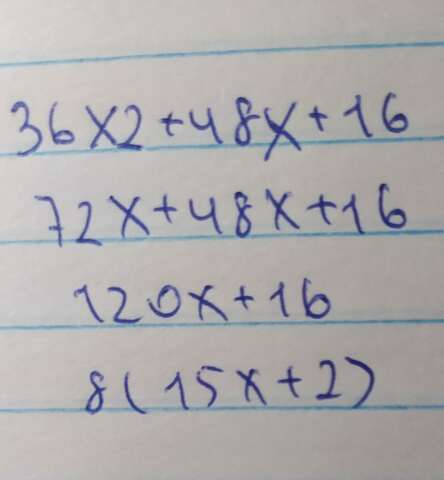 36x2+48x+16
72x+48x+16
120x+16
8(15x+2)